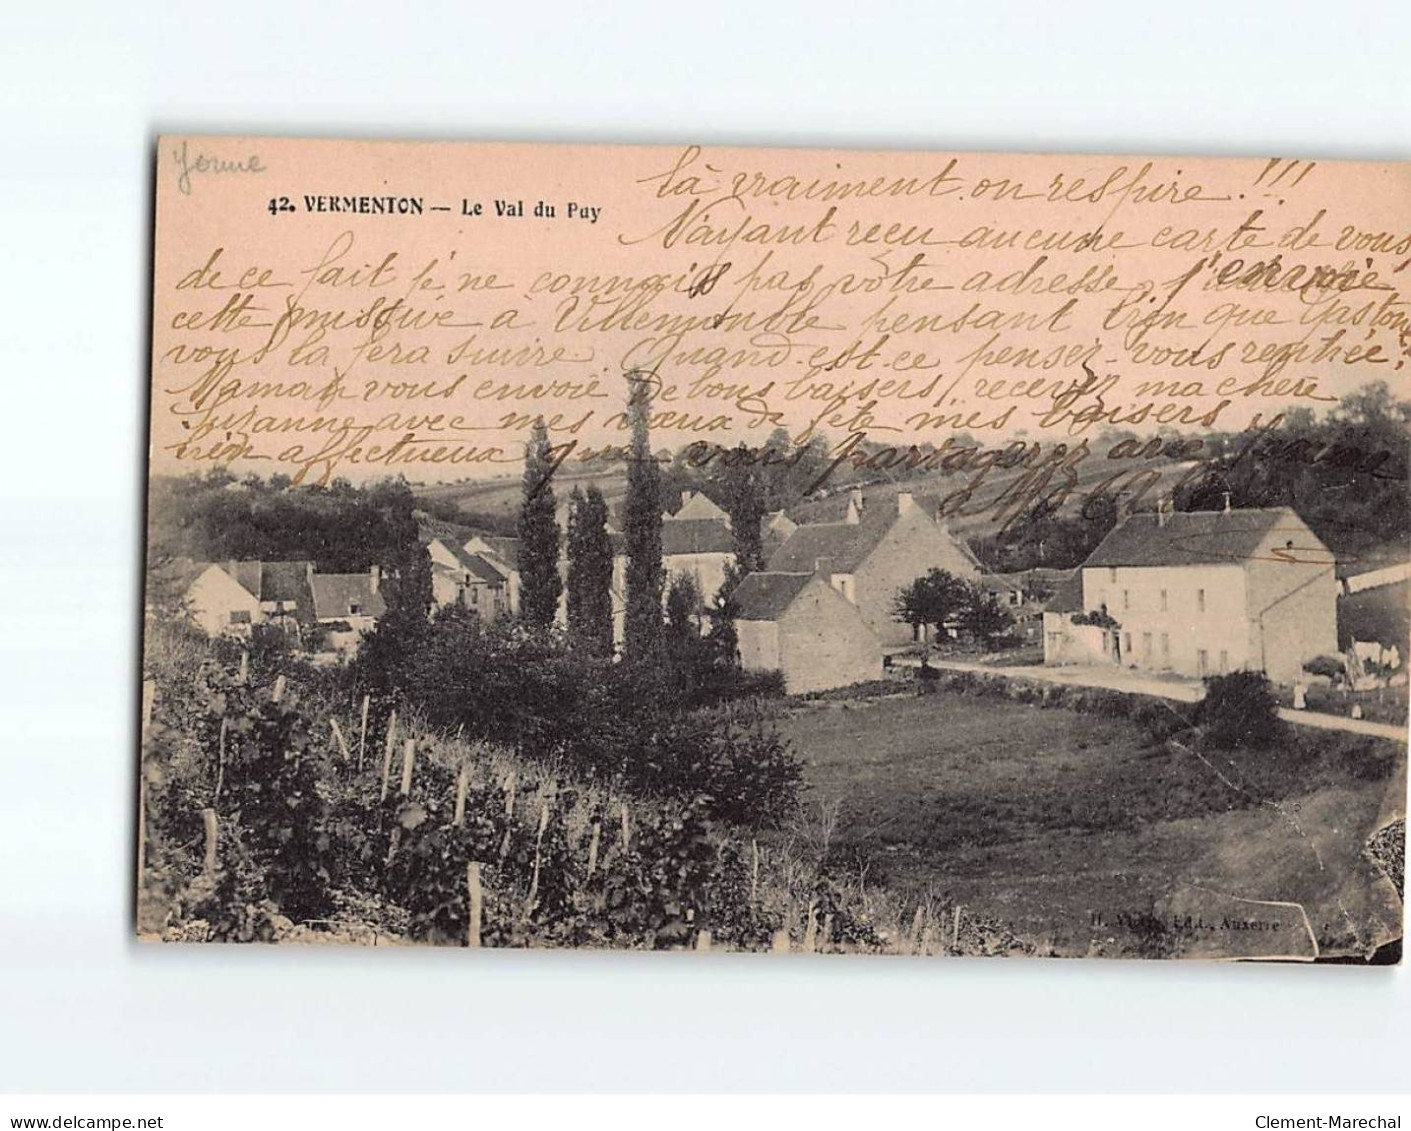 Yonne
42. VERMENTON — Le Val du Puy
là vraiment on respire !!!
N'ayant reçu aucune carte de vous,
de ce fait je ne connais pas votre adresse, j'envoie
cette missive à Villemomble pensant bien que Gaston
vous la fera suivre. Quand est-ce pensez-vous rentrée.
Maman vous envoie de bons baisers, recevez ma chère
Suzanne avec mes vœux de fête mes baisers
bien affectueux que vous partagerez avec
H. Edit., Auxerre
www.delcampe.net
Clement-Marechal